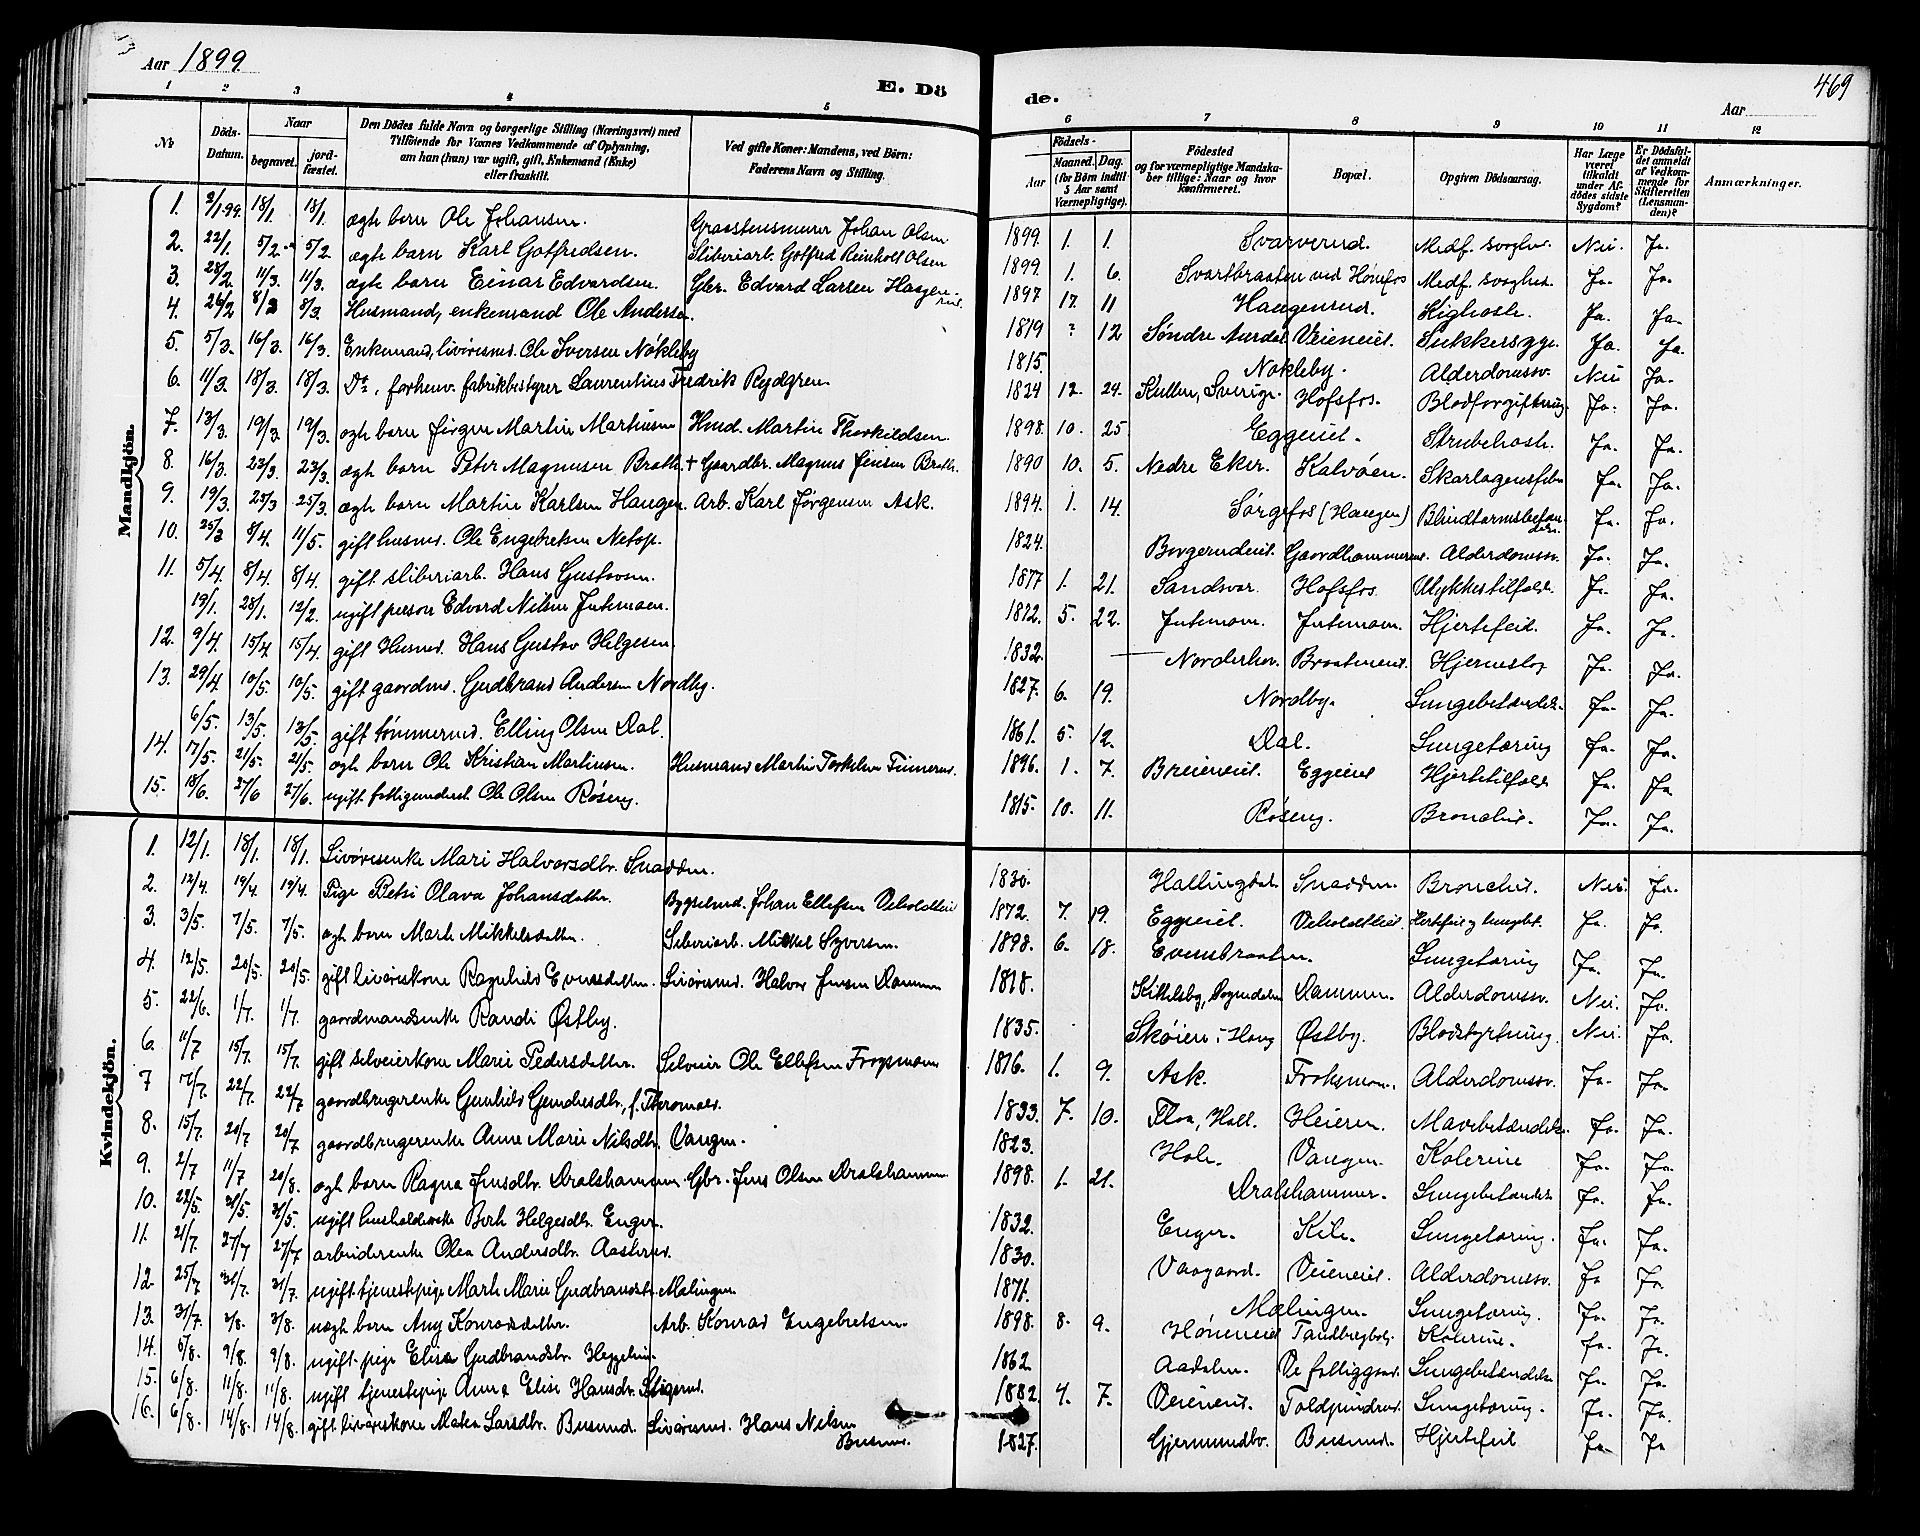 Aar 1899.
E. Dö
de.
469
Aar
1 2 3 4 5
6 7 8 9 10 11 12
No
Döds-Datum.
Naar
begravet. jord-fæstet.
Den Dödes fulde Navn og borgerlige Stilling (Næringsvei) med
Tilföiende for Voxnes Vedkommende af Oplysning,
om han (hun) var ugift, gift, Enkemand (Enke)
eller fraskilt.
Ved gifte Koner: Mandens, ved Börn:
Faderens Navn og Stilling.
Födsels-
Aar Maaned. Dag.
(for Börn indtil
5 Aar samt
Værnepligtige).
Födested
og for værnepligtige Mandska-
ber tillige: Naar og hvor
Konfirmeret.
Bopæl.
Opgiven Dödsaarsag.
Har Læge
været
tilkaldt
under Af-
dödes sidste
Sygdom?
Er Dödsfal-
det anmeldt
af Vedkom-
mende for
Skifteretten
(Lensman-
den)?
Anmærkninger.
Mandkjön.
1. 2/1.99. 18/1 18/1. ægte barn Ole Johansen. Graastensmurer Johan Olsen 1899. 1. 1. Svarverud. Medf. svaghed. Nei Ja.
2. 22/1. 5/2. 5/2. ægte barn Karl Gotfredsen. Sliberiarb. Gotfred Reinholt Olsen 1899. 1. 6. Svartbraaten ved Hønefos Medf. svaghed. Ja. Ja.
3. 28/2. 11/3. 11/3. ægte barn Einar Edvardsen. Gbr. Edvard Larsen Haugenrud. 1897 17. 11 Haugenrud. Kighoste. Ja. Ja.
4. 26/2 8/3 8/3. Husmand, enkemand Ole Andersen. 1819 ? 12 Søndre Aurdal Veieneiet. Sukkersyge. Ja. Ja.
5. 5/3. 16/3. 16/3. Enkemand, livøresmd. Ole Iversen Nøkleby 1815. Nøkleby. Alderdomssv. Nei Ja.
6. 11/3. 18/3. 18/3. Do., forhenv. fabrikbestyrer Laurentius Fredrik Rydgren 1824 12. 24. Kullen, Sverige. Hofsfos. Blodforgiftning. Ja. Ja.
7. 13/3. 19/3. 19/3. ægte barn Jørgen Martin Martinsen Hmd. Martin Thorkildsen. 1898. 10. 25 Eggeeiet. Strubehoste. Ja. Ja.
8. 16/3. 23/3. 23/3. ægte barn Peter Magnusen Brath. + Gaardbr. Magnus Jensen Brath. 1890 10. 5. Nedre Eker. Kalvøen. Skarlagensfeber Ja. Ja.
9. 19/3. 25/3 25/3. ægte barn Martin Karlsen Haugen. Arb. Karl Jørgensen Ask. 1894. 1. 14. Sørgefos (Haugen) Blindtarmsbetændelse. Ja. Ja.
10. 25/3 8/4. 11/5. gift husmd. Ole Engebretsen Netop. 1824. Borgerudeiet. Gaardhammereiet. Alderdomssv. Ja. Ja.
11. 5/4. 8/4. 8/4. gift sliberiarb. Hans Gustavsen. 1877 1. 21. Sandsvær. Hofsfos. Ulykkestilfælde. Ja. Ja.
19/1. 28/1. 12/2. ugift person Edvard Nilsen Jutemoen. 1812. 5. 22. Jutemoen. Jutemoen. Hjertefeil. Ja. Ja.
12. 9/4. 15/4 15/4. gift Husmd. Hans Gustav Helgesen. 1832. Norderhov. Braateneiet. Hjerneslag Ja. Ja.
13. 29/4. 10/5. 10/5. gift gaardmd. Gudbrand Andersen Nordby. 1827. 6. 19. Nordby. Lungebetændelse. Ja. Ja.
6/5. 13/5. 13/5. gift tømmermd. Elling Olsen Dal. 1861. 5. 12. Dal. Lungetæring Ja. Ja.
14. 17/5. 21/5. 21/5. ægte barn Ole Kristian Martinsen. Husmand Martin Torkelsen 1896. 1. 7. Breieneiet. Eggeeiet Hjertetilfælde Ja. Ja
15. 18/6. 27/6 27/6. ugift fattigunderst. Ole Olsen Røseng. 1815. 10. 11. Røseng. Bronchit. Ja. Ja.
Kvindekjön.
1. 12/1. 18/1. 18/1. Livøresenke Mari Halvorsdtr. Snadden. 1830. Hallingdal. Snadden. Bronchit. Nei. Ja.
2. 12/4. 19/4. 19/4. Pige Betsi Olava Johansdatter. Bygselmd. Johan Ellefsen 1872. 7. 19. Eggeeiet. Hjertefeil og lungebet. Ja. Ja.
3. 3/5. 7/5. 7/5. ægte barn Marthe Mikkelsdatter. Sliberiarb. Mikkel Syversen. 1898. 6. 18. Evensbraaten. Lungetæring Ja. Ja.
4. 12/5. 20/5. 20/5. gift livøreskone Ragnhild Evensdatter. Livøresmd. Halvor Jensen Dammen 1818. Kittelsby, Sognedalen Dammen. Alderdomssv. Nei. Ja.
5. 22/6. 1/7. 1/7. gaardmandsenke Randi Østby. 1835. Skøien i Haug Østby. Blodstyrtning. Nei. Ja.
6. 11/7 15/7. 15/7. gift selveierkone Marie Pedersdatter. Selveier Ole Ellefsen Frogsmoen 1816. 1. 9. Ask. Frogsmoen. Alderdomssv. Ja. Ja.
7 17/7. 22/7. 22/7 gaardbrugerenke Gunhild 1833. 7. 10. Flaa, Hall. Heieren. Mavebetændelse. Ja. Ja.
8. 15/7. 20/7 20/7 gaardbrugerenke Anne Marie Nilsdtr. Vangen. 1823. Hole. Vangen. Kolerine Ja. Ja.
9. 2/7 11/7 20/8. ægte barn Ragna Jensdtr. Dralshammer. Gbr. Jens Olsen Dralshammer 1898. 1. 21. Dralshammer. Lungebetændelse Ja. Ja.
10. 22/5. 31/5. 31/5. ugift husholderske Berthe Helgesdtr. Enger. 1832. Enger. Kile. Lungetæring. Ja. Ja.
11. 21/7. 27/7 27/7 arbeiderenke Olea Andersdtr. Aasterud. 1830. Vaagaard. Veieneiet. Alderdomssv. Ja Ja.
12. 25/7 31/7. 31/7. ugift tjenestepige Marthe Marie Gudbrandsdtr. Mælingen 1871. Mælingen. Lungetæring. Ja. Ja.
13. 31/7 3/8. 3/8. uægte barn Any Konradsdatter. Arb. Konrad Engebretsen. 1898. 8. 9. Høneneiet Tandbergbolig. Kolerine. Ja. Ja.
14. 5/8. 9/8. 9/8. ugift pige Elise Gudbrandsdtr. 1862. Aadalen. De fattiggaard. Lungebetændelse Ja. Ja.
15. 6/8. 11/8. 11/8. ugift tjenestepige Anna Elise Hansdtr. Stigerud. 1882. 4. 7. Veieneiet. Lungetæring. Ja. Ja.
16. 6/8. 14/8. 14/8. gift livøreskone Mathea Larsdtr. Busund. Livøresmd. Hans Nilsen Busund. 1827. Gjermundbo. Busund. Hjertefeil Ja. Ja